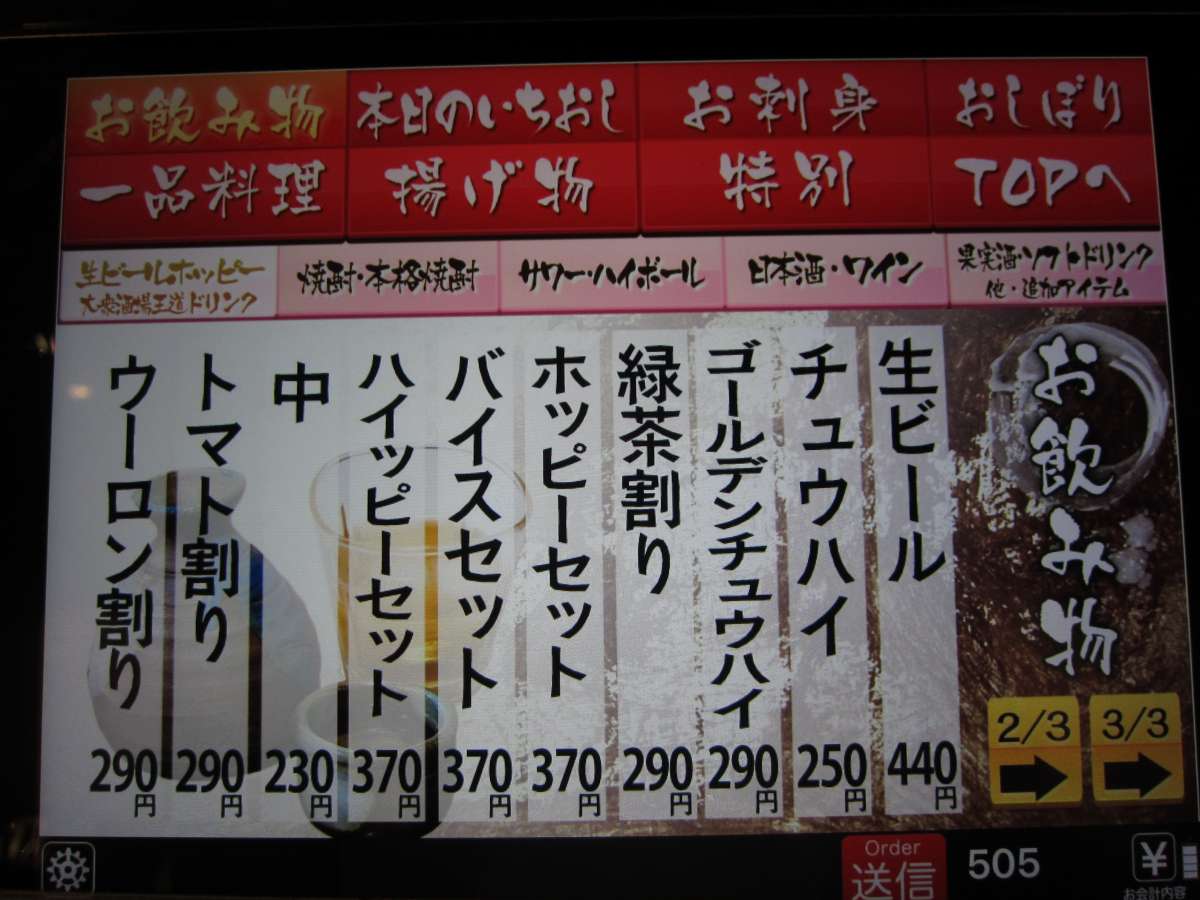 お飲み物
本日のいちおし
お刺身
おしぼり
一品料理
揚げ物
特別
TOPへ
生ビールホッピー
大衆酒場王道ドリンク
焼酎・本格焼酎
サワー・ハイボール
日本酒・ワイン
果実酒・ソフトドリンク
他・追加アイテム
お飲み物
生ビール
440円
チュウハイ
250円
ゴールデンチュウハイ
290円
緑茶割り
290円
ホッピーセット
370円
バイスセット
370円
ハイッピーセット
370円
中
230円
トマト割り
290円
ウーロン割り
290円
2/3
3/3
Order
送信
505
¥
お会計内容